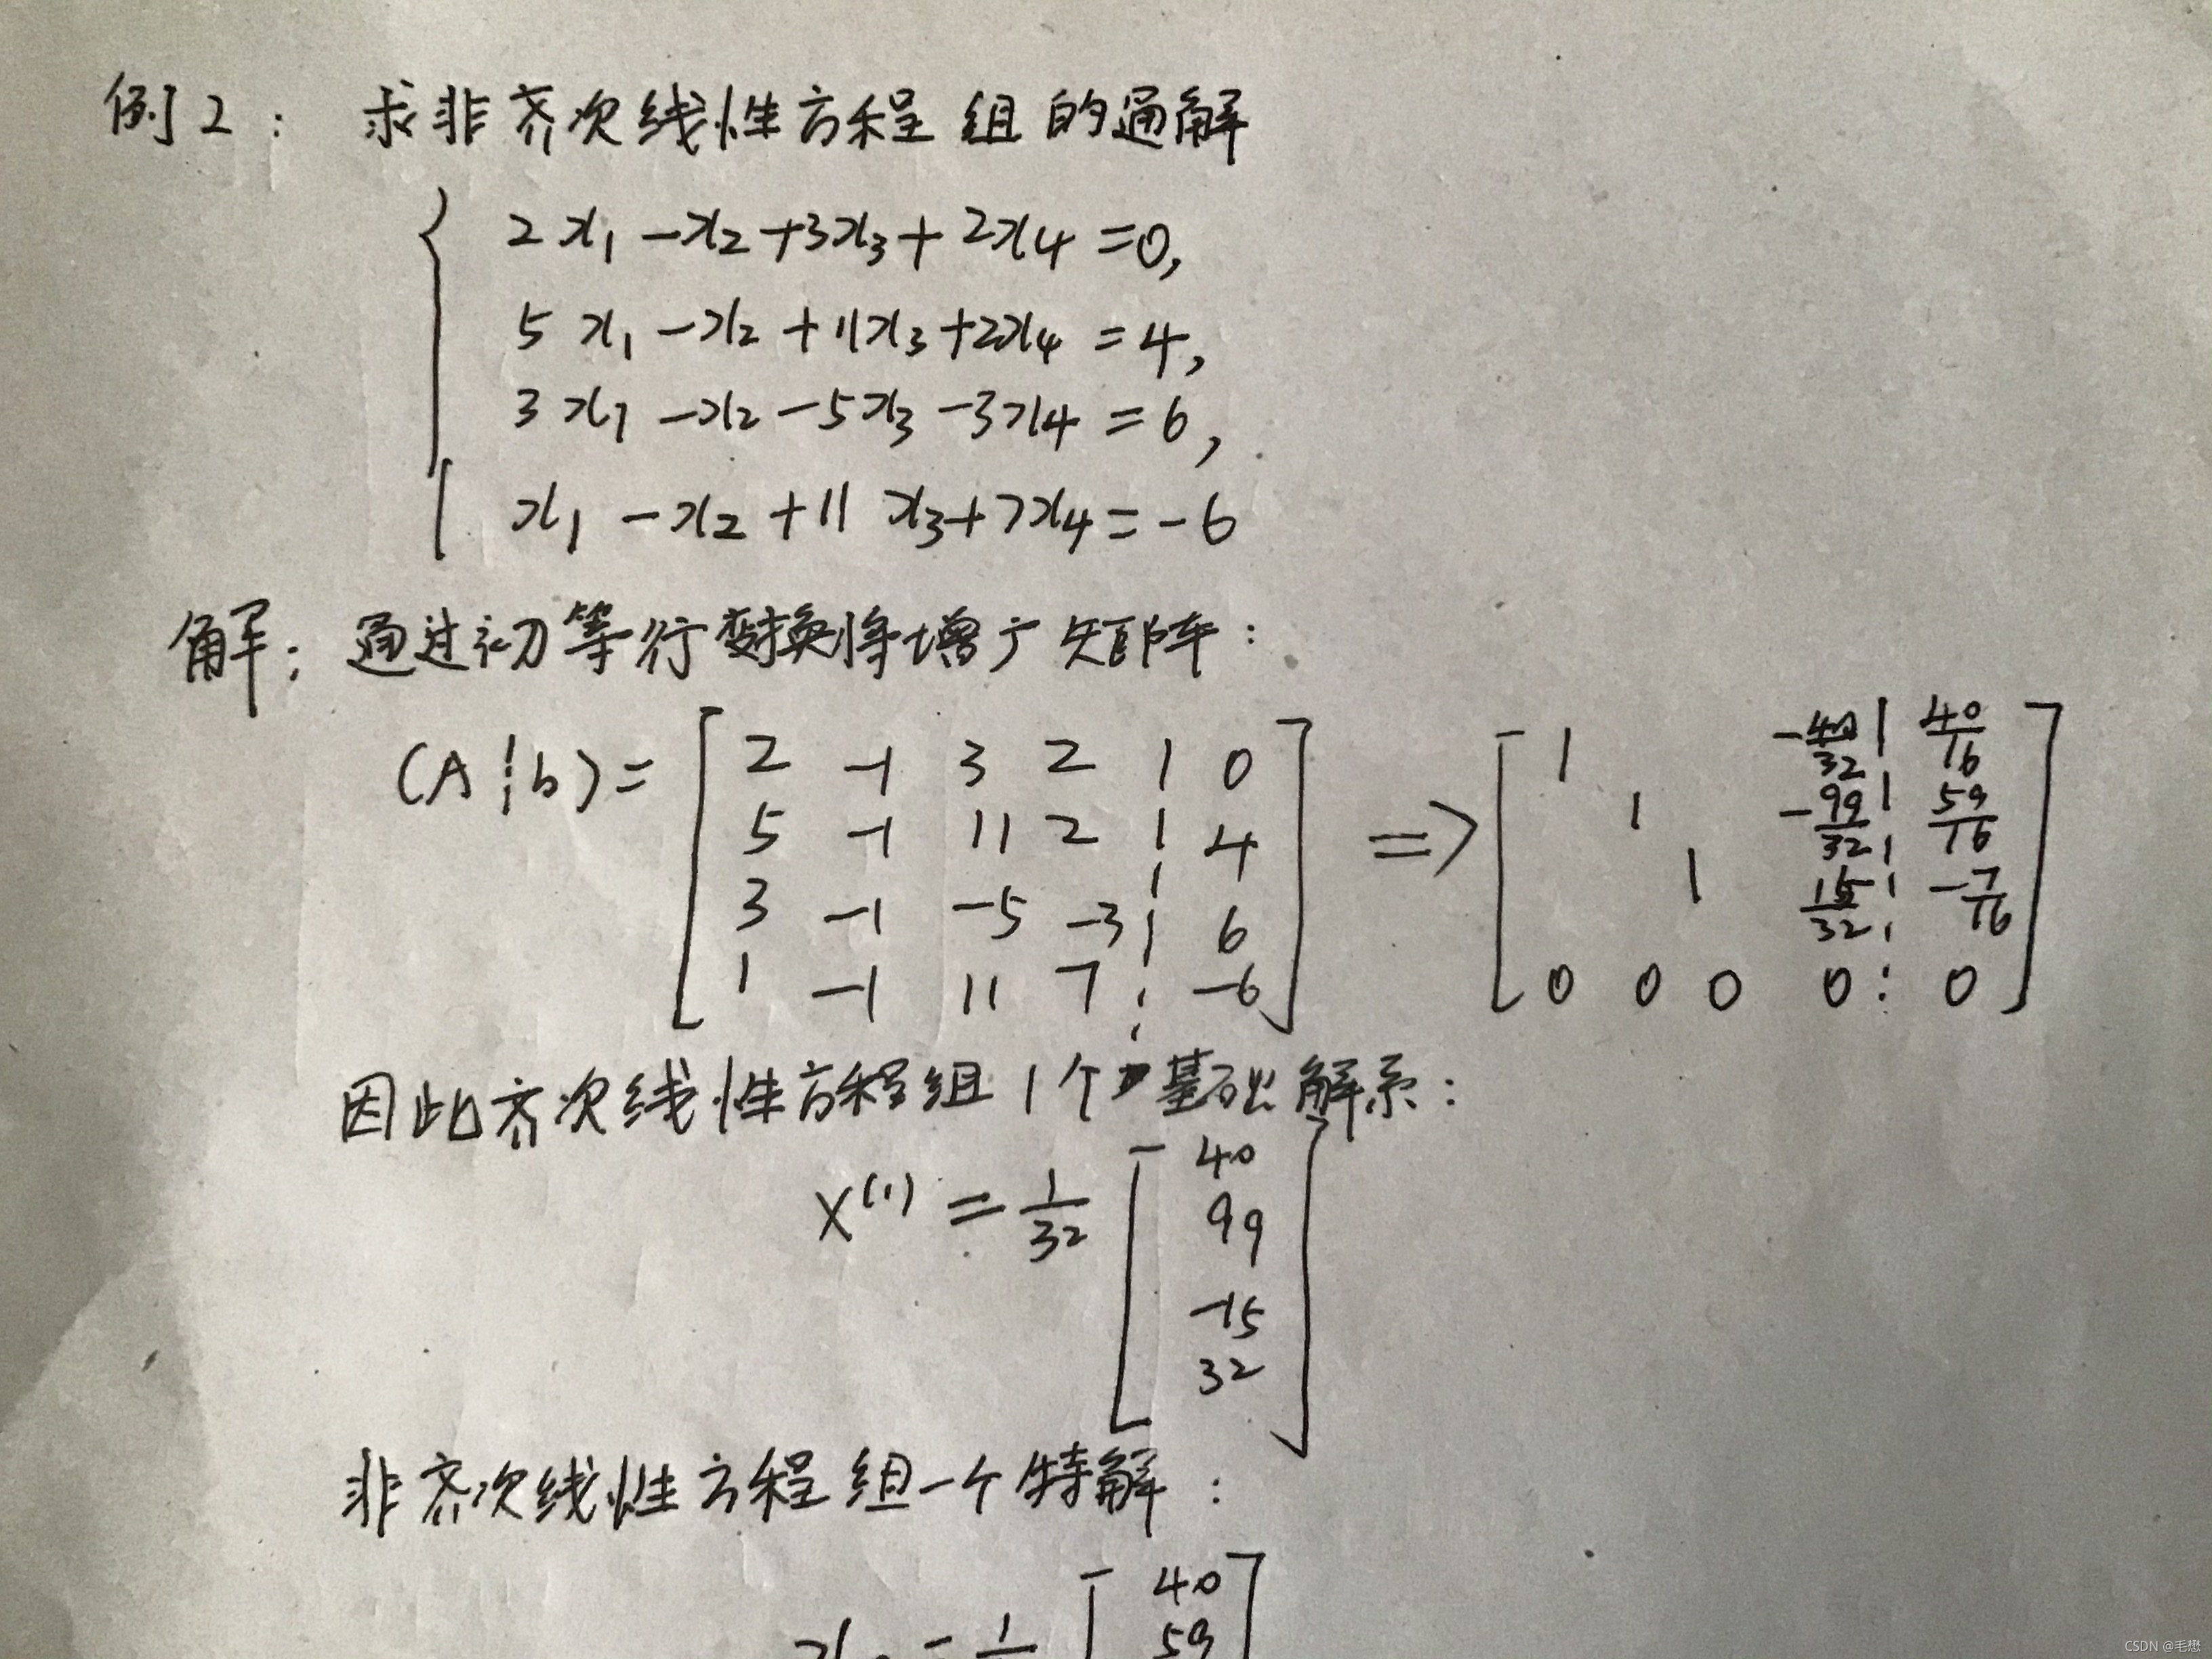 例2： 求非齐次线性方程组的通解
2x₁ -x₂ +3x₃ + 2x₄ =0,
5x₁ -x₂ +11x₃ +2x₄ =4,
3x₁ -x₂ -5x₃ -3x₄ =6,
x₁ -x₂ +11x₃ +7x₄ =-6
解：通过初等行变换将增广矩阵：
(A¦b)= [ 2 -1 3 2 ¦ 0 ] => [ 1 -40/32 ¦ 40/16 ]
5 -1 11 2 ¦ 4 1 -99/32 ¦ 59/16
3 -1 -5 -3 ¦ 6 1 15/32 ¦ -7/16
1 -1 11 7 ¦ -6 0 0 0 0 ¦ 0
因此齐次线性方程组1个基础解系：
X⁽¹⁾ = 1/32 [ 40
99
-15
32 ]
非齐次线性方程组一个特解：
40
59
CSDN @毛懋